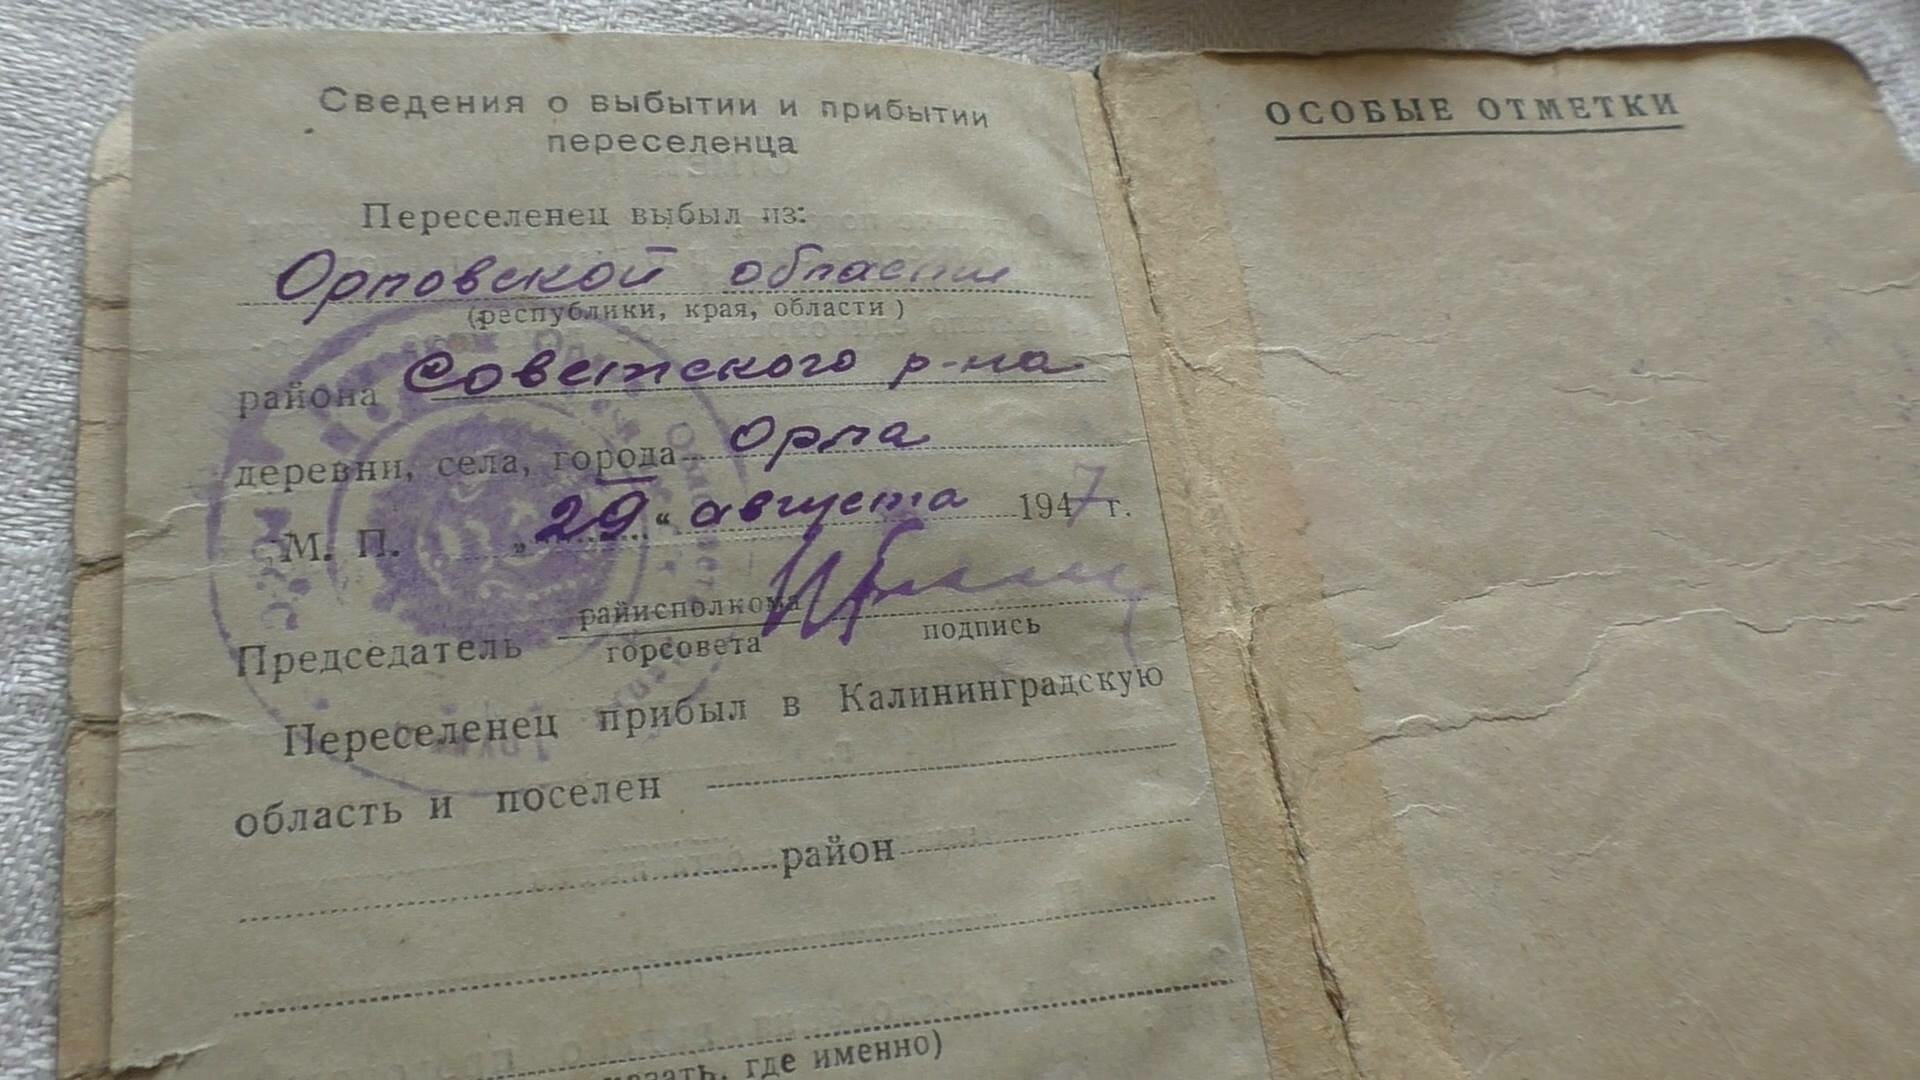 Сведения о выбытии и прибытии
переселенца
Переселенец выбыл из:
Орловской области
(республики, края, области)
района Советского р-на
деревни, села, города Орла
М. П. „29“ августа 1947 г.
Председатель райисполкома
горсовета
подпись
Переселенец прибыл в Калининградскую
область и поселен
район
где именно)
ОСОБЫЕ ОТМЕТКИ